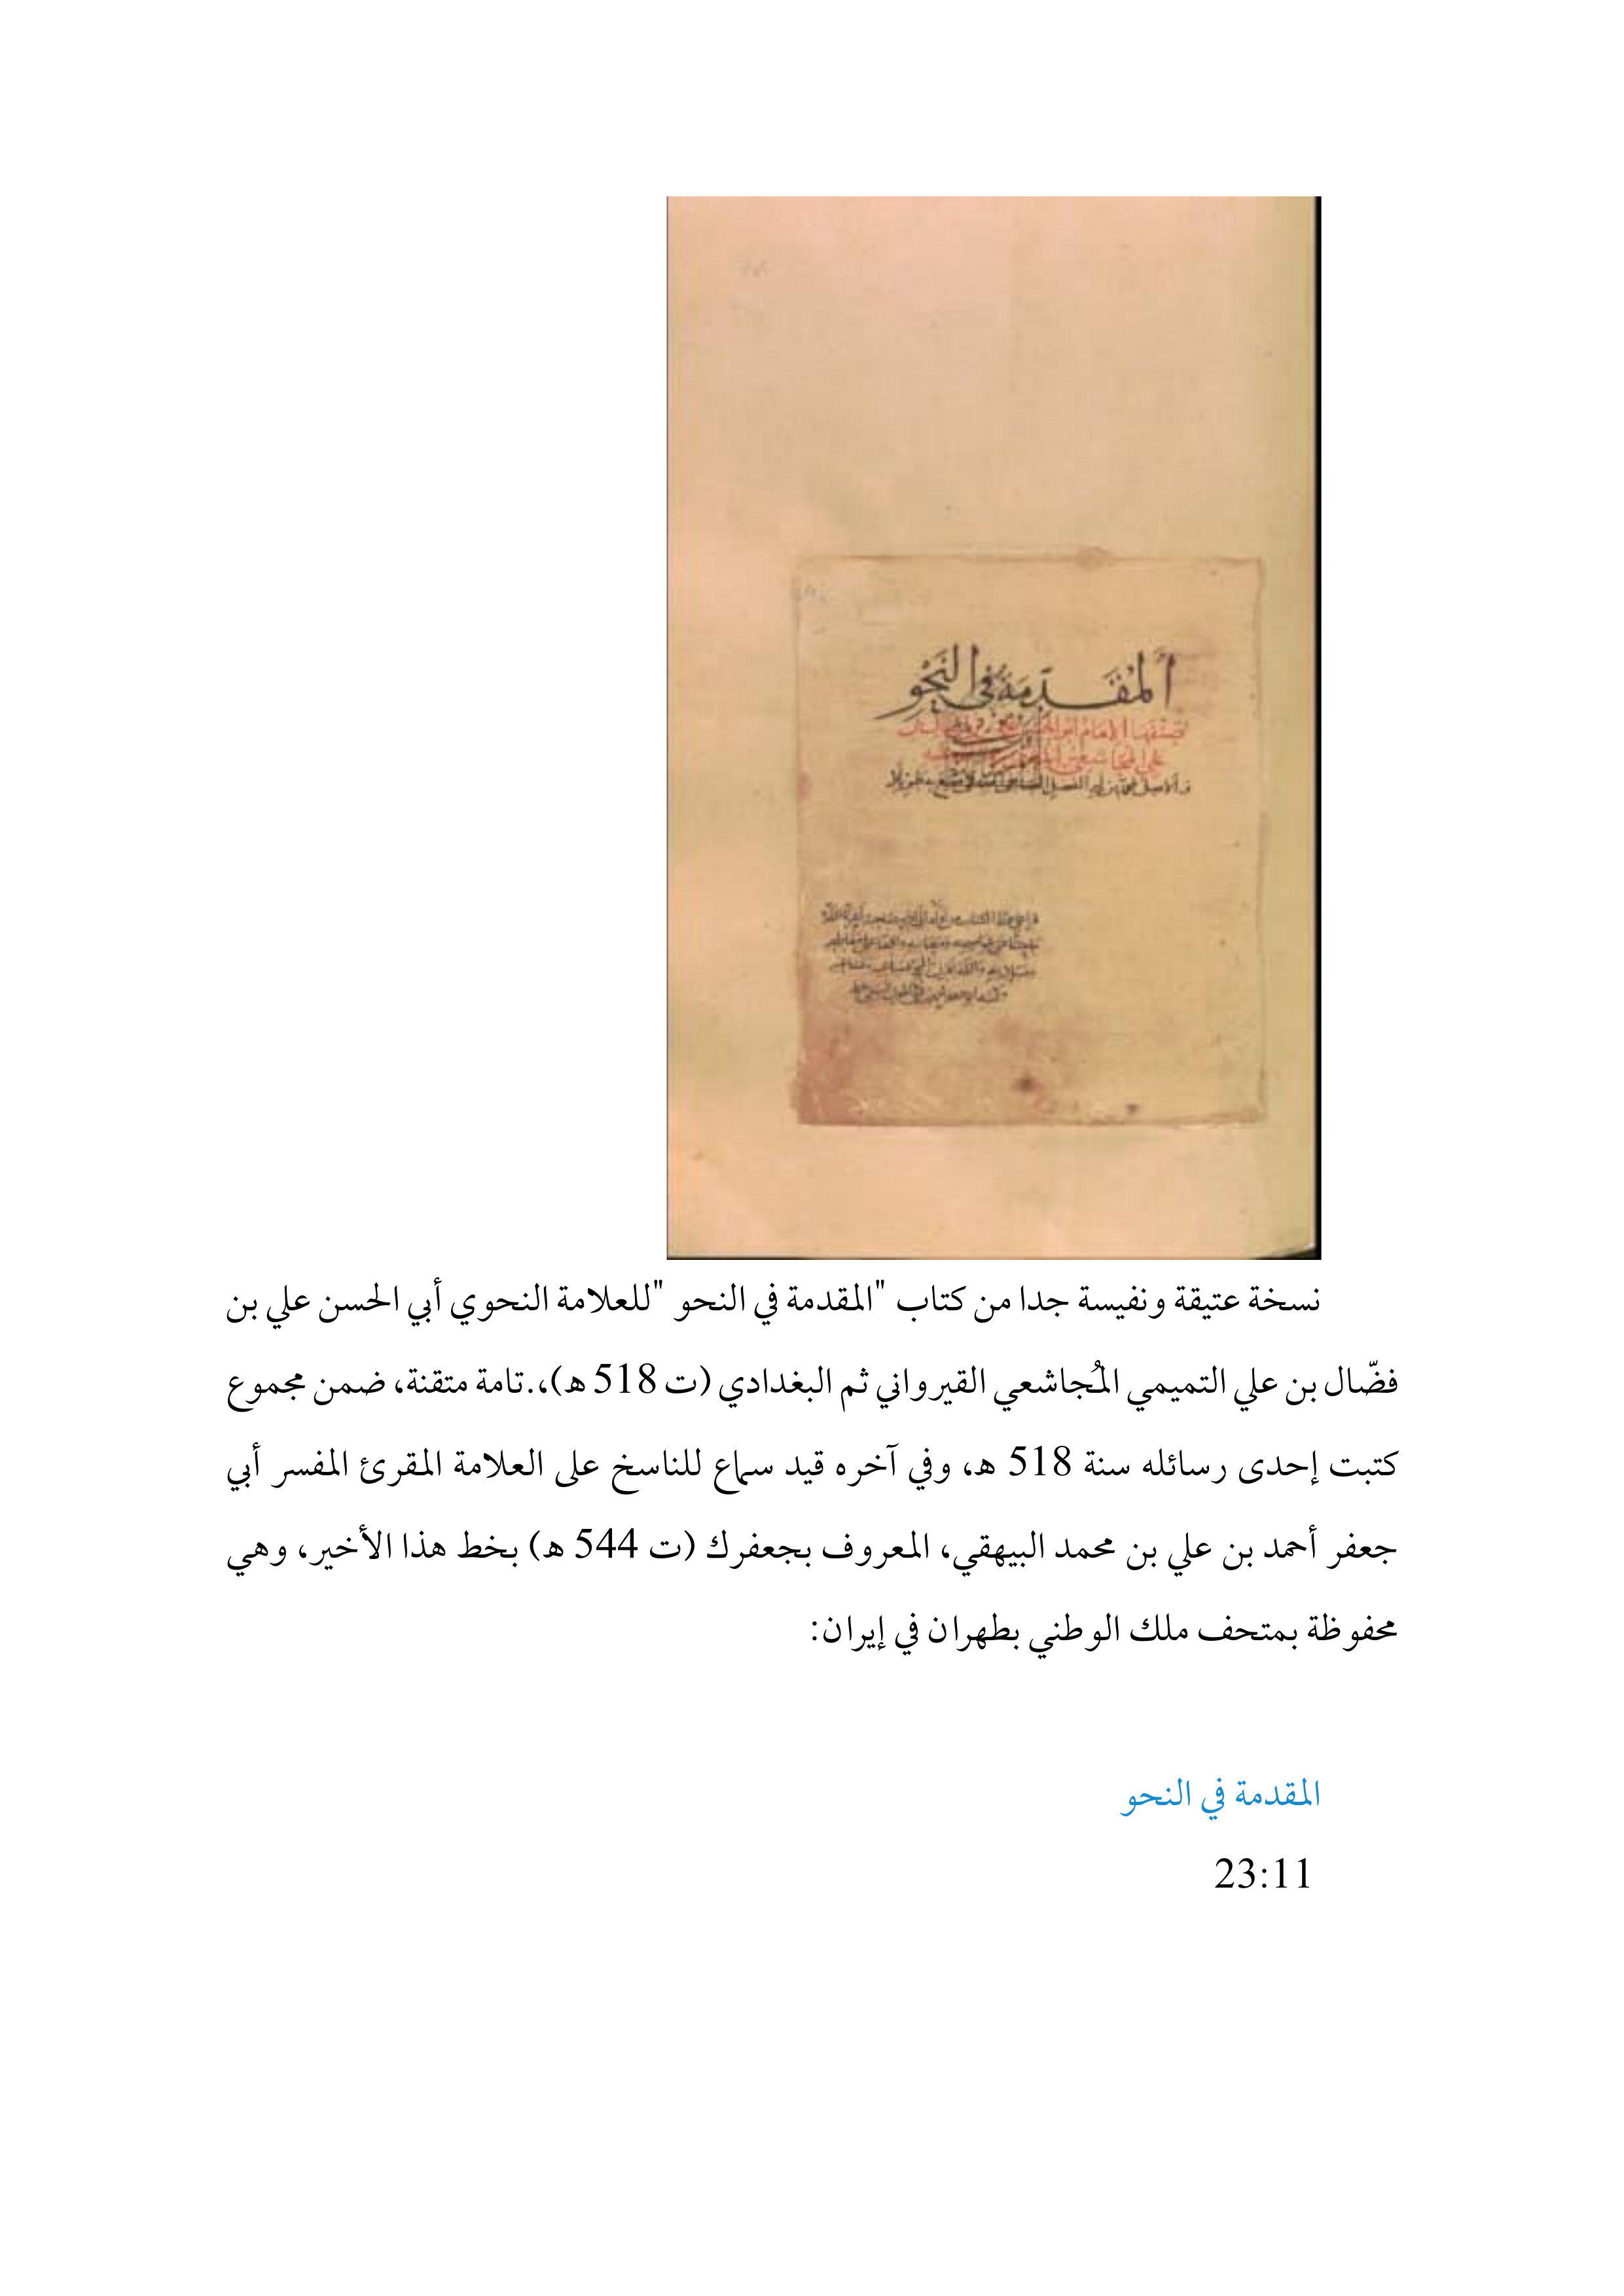 المقدمة في النحو
صنفها الامام ابو الحسن
علي المجاشعي
نسخة عتيقة ونفيسة جدا من كتاب "المقدمة في النحو "للعلامة النحوي أبي الحسن علي بن
فضّال بن علي التميمي المُجاشعي القيرواني ثم البغدادي (ت 518 ه)،.تامة متقنة، ضمن مجموع
كتبت إحدى رسائله سنة 518 ه، وفي آخره قيد سماع للناسخ على العلامة المقرئ المفسر أبي
جعفر أحمد بن علي بن محمد البيهقي، المعروف بجعفرك (ت 544 ه) بخط هذا الأخير، وهي
محفوظة بمتحف ملك الوطني بطهران في إيران:
المقدمة في النحو
23:11